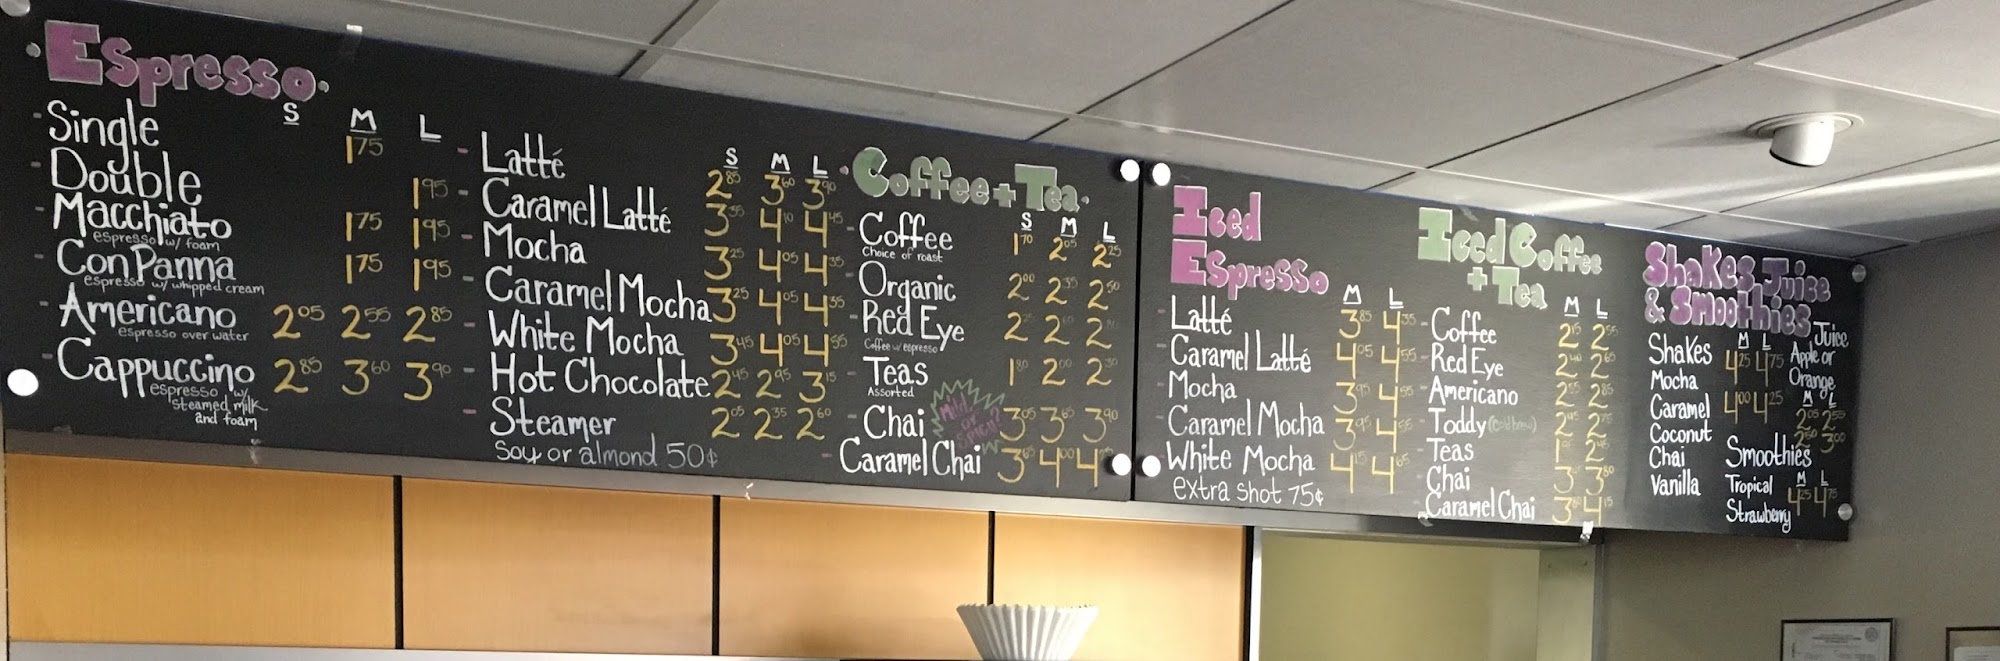 Espresso
S M L
Single 175
Double 195
Macchiato 175 195
espresso w/ foam
Con Panna 175 195
espresso w/ whipped cream
Americano 205 255 285
espresso over water
Cappuccino 285 360 390
espresso w/
steamed milk
and foam
S M L
Latté 285 360 390
Caramel Latté 335 410 445
Mocha 325 405 435
Caramel Mocha 325 405 435
White Mocha 345 405 455
Hot Chocolate 245 295 315
Steamer 205 235 260
Soy or almond 50¢
Coffee + Tea
S M L
Coffee 170 205 225
Choice of roast
Organic 200 235 250
Red Eye
Coffee w/ espresso
Teas 180 200 230
Assorted
Chai 305 365 390
Mild or Spicy?
Caramel Chai 365 400
Iced
Espresso
M L
Latté 385 435
Caramel Latté 405 455
Mocha 395 455
Caramel Mocha 395 455
White Mocha 415 465
extra shot 75¢
Iced Coffee
+ Tea
M L
Coffee 215 255
Red Eye 265
Americano 255 285
Toddy (cold brew)
Teas
Chai 380
Caramel Chai 415
Shakes, Juice
& Smoothies
M L
Shakes 425 475
Mocha
Caramel 400 425
Coconut
Chai
Vanilla
Juice
Apple or
Orange
M L
205 255
250 300
Smoothies
M L
Tropical 425 475
Strawberry